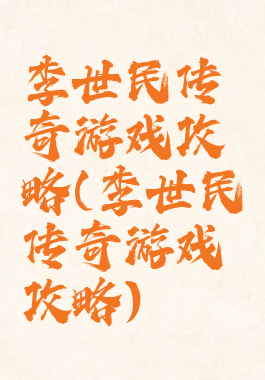 李世民传
奇游戏攻
略(李世民
传奇游戏
攻略)